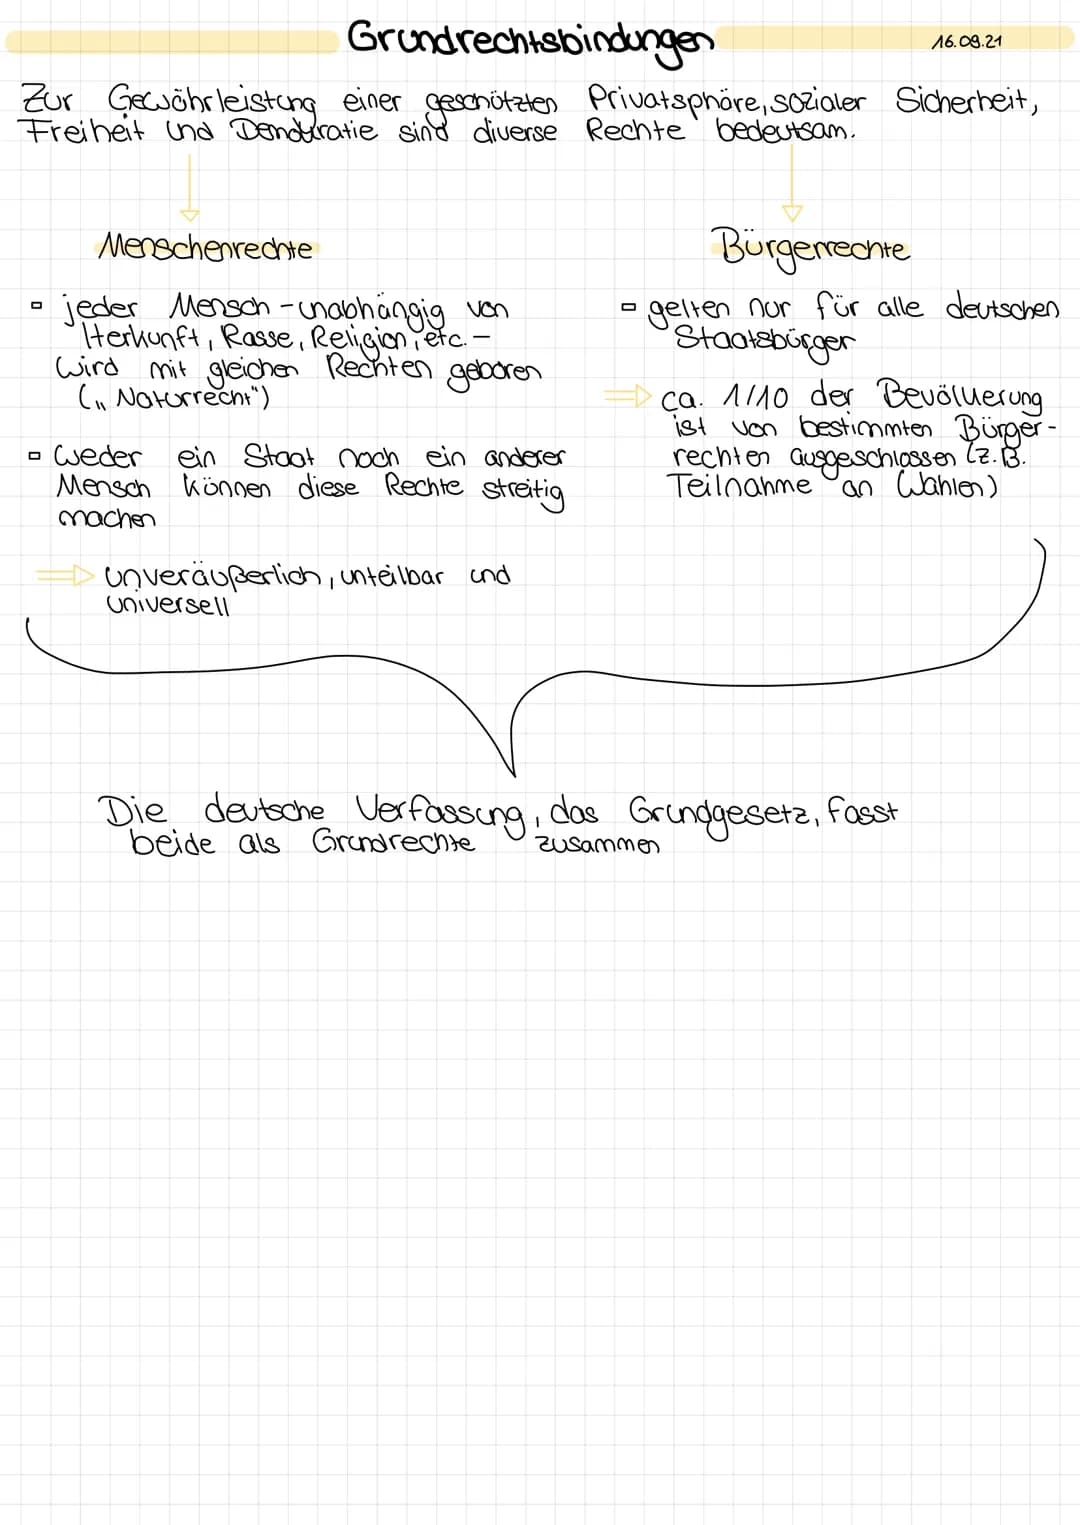 Grundrechtsbindungen
16.09.21
Zur Gewährleistung einer geschützten Privatsphäre, sozialer Sicherheit,
Freiheit und Demokratie sind diverse Rechte bedeutsam.
Menschenrechte
▫ jeder Mensch - unabhängig von
Herkunft, Rasse, Religion, etc. -
wird mit gleichen Rechten geboren
(„Naturrecht")
▫ weder ein Staat noch ein anderer
Mensch können diese Rechte streitig
machen
⇒ unveräußerlich, unteilbar und
universell
Bürgerrechte
▫ gelten nur für alle deutschen
Staatsbürger
⇒ ca. 1/10 der Bevölkerung
ist von bestimmten Bürger-
rechten ausgeschlossen (z.B.
Teilnahme an Wahlen)
Die deutsche Verfassung, das Grundgesetz, fasst
beide als Grundrechte zusammen